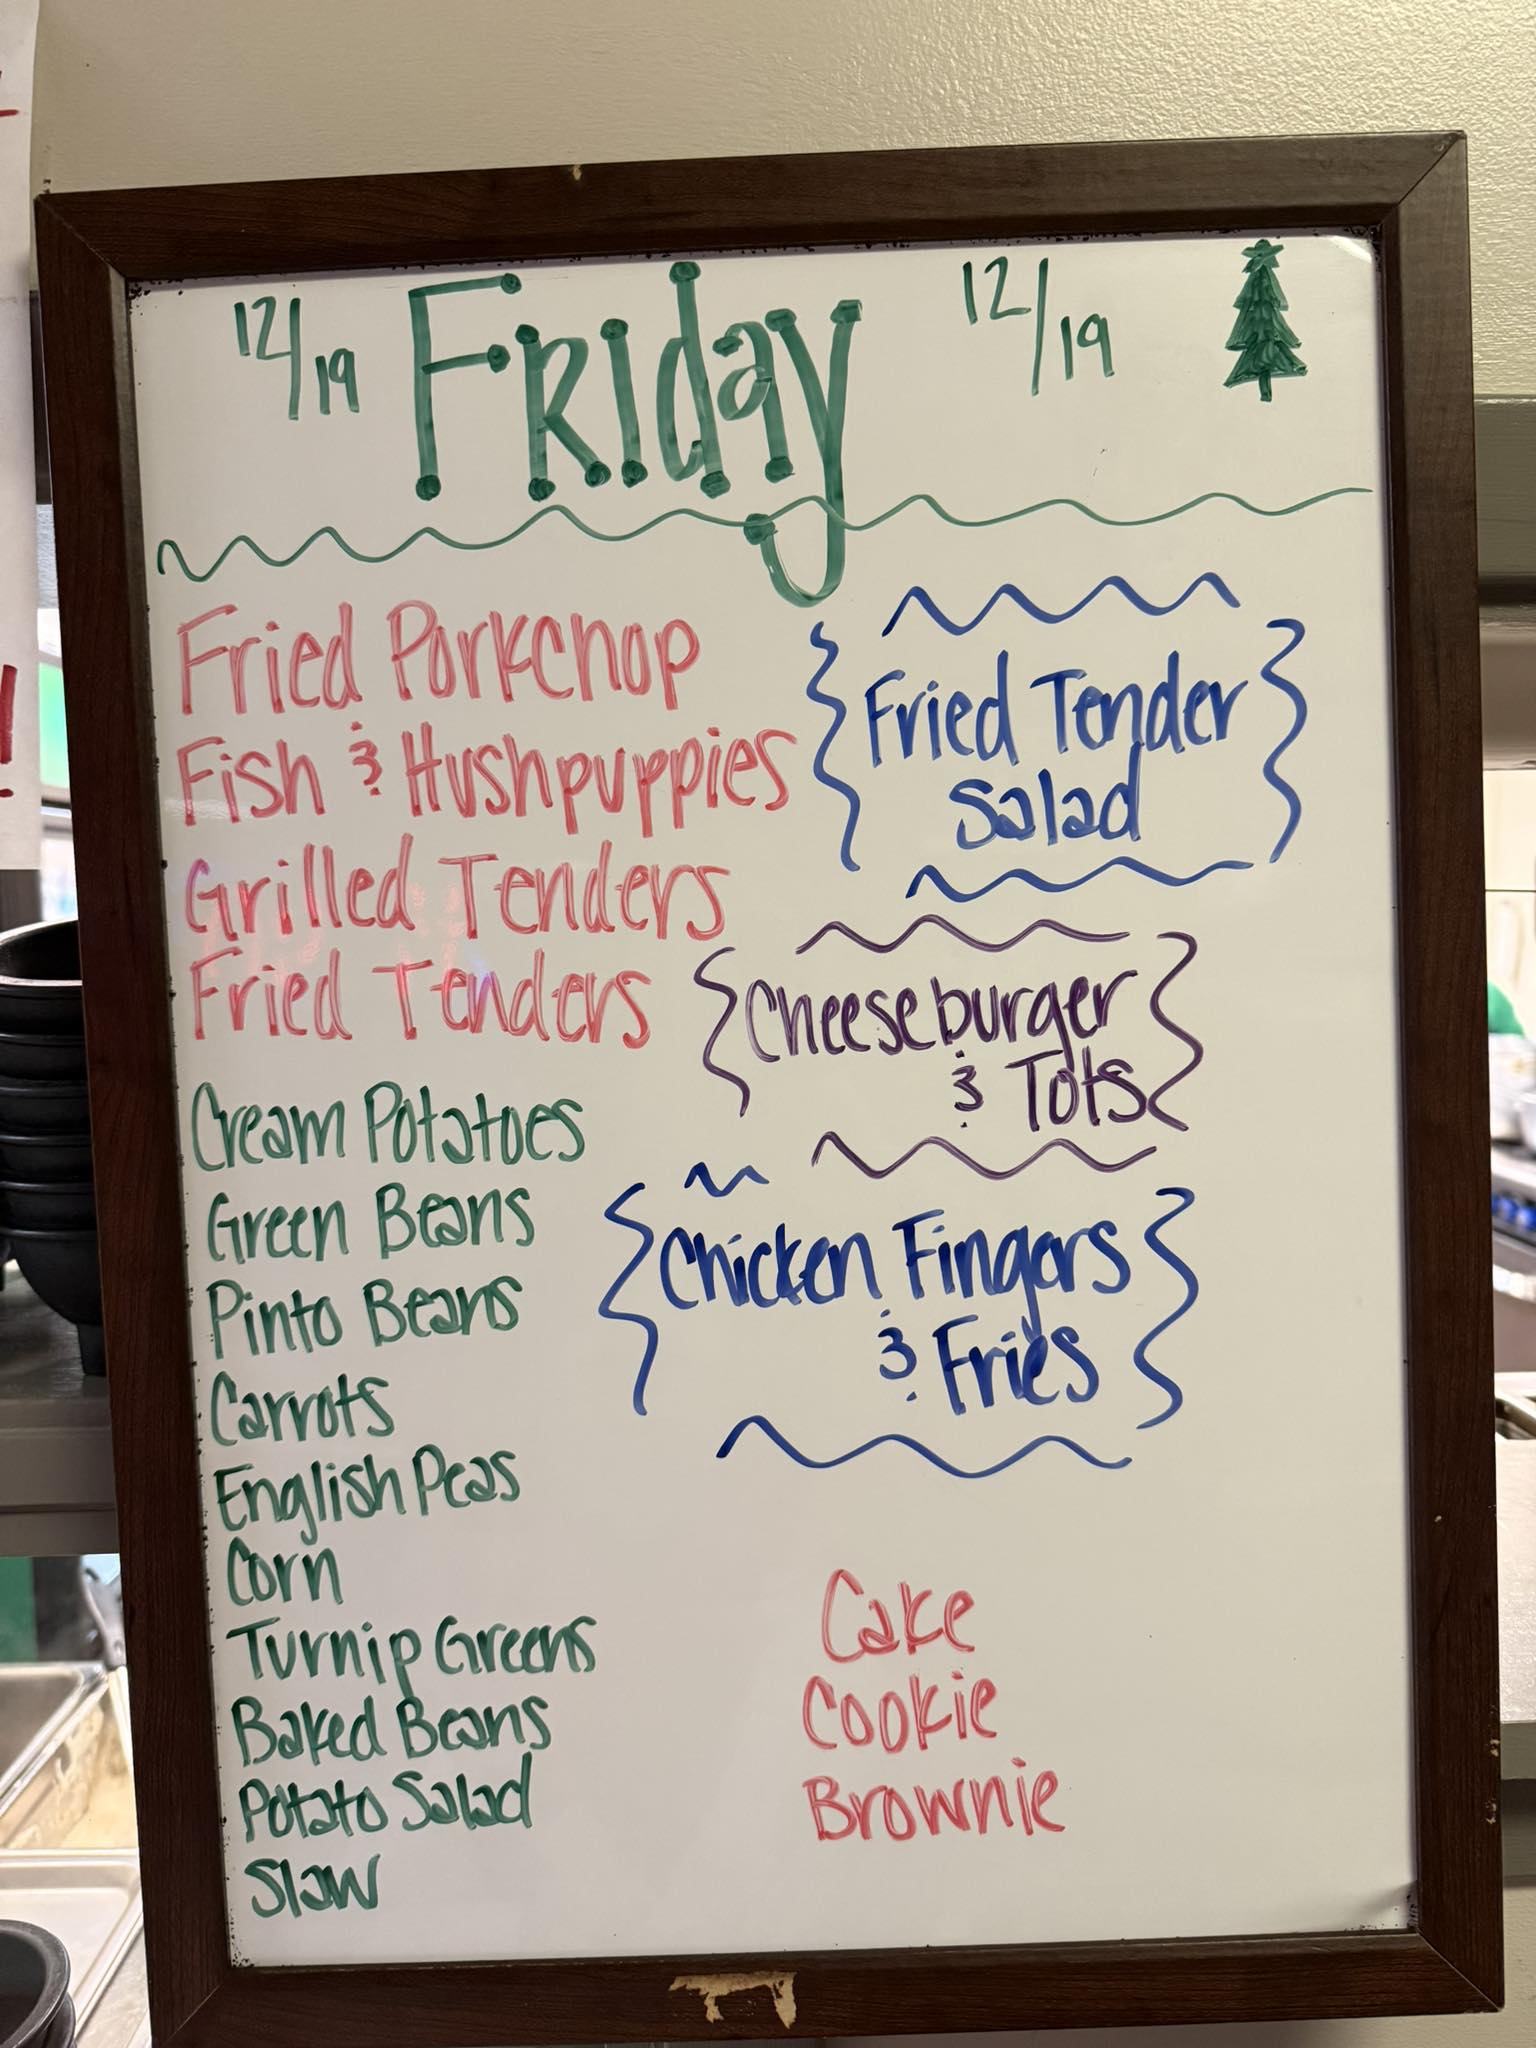 12/19 Friday 12/19
Fried Porkchop
Fish & Hushpuppies
Grilled Tenders
Fried Tenders
Cream Potatoes
Green Beans
Pinto Beans
Carrots
English Peas
Corn
Turnip Greens
Baked Beans
Potato Salad
Slaw
Fried Tender
Salad
Cheeseburger
& Tots
Chicken Fingers
& Fries
Cake
Cookie
Brownie